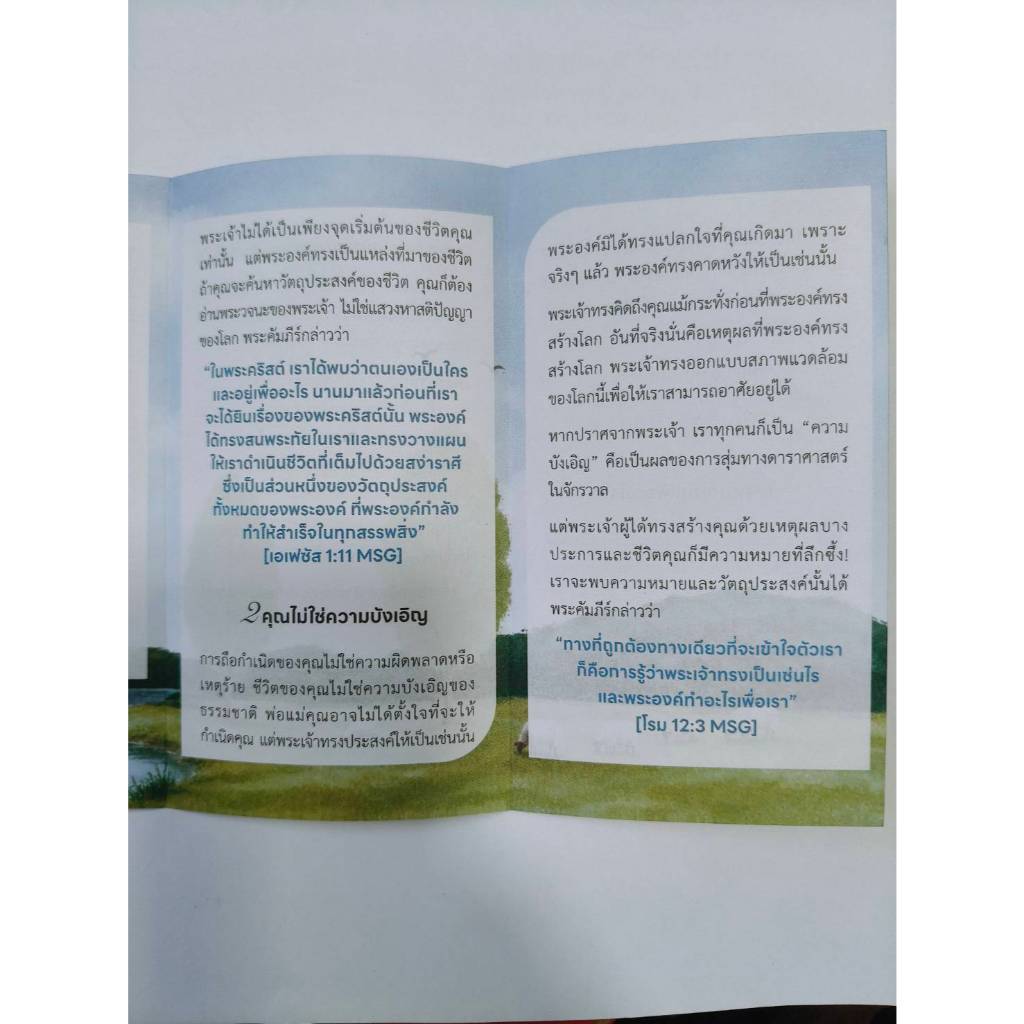 พระเจ้าไม่ได้เป็นเพียงจุดเริ่มต้นของชีวิตคุณ
เท่านั้น แต่พระองค์ทรงเป็นแหล่งที่มาของชีวิต
ถ้าคุณจะค้นหาวัตถุประสงค์ของชีวิต คุณก็ต้อง
อ่านพระวจนะของพระเจ้า ไม่ใช่แสวงหาสติปัญญา
ของโลก พระคัมภีร์กล่าวว่า
“ในพระคริสต์ เราได้พบว่าตนเองเป็นใคร
และอยู่เพื่ออะไร นานมาแล้วก่อนที่เรา
จะได้ยินเรื่องของพระคริสต์นั้น พระองค์
ได้ทรงสนพระทัยในเราและทรงวางแผน
ให้เราดำเนินชีวิตที่เต็มไปด้วยสง่าราศี
ซึ่งเป็นส่วนหนึ่งของวัตถุประสงค์
ทั้งหมดของพระองค์ ที่พระองค์กำลัง
ทำให้สำเร็จในทุกสรรพสิ่ง”
[เอเฟซัส 1:11 MSG]
2 คุณไม่ใช่ความบังเอิญ
การถือกำเนิดของคุณไม่ใช่ความผิดพลาดหรือ
เหตุร้าย ชีวิตของคุณไม่ใช่ความบังเอิญของ
ธรรมชาติ พ่อแม่คุณอาจไม่ได้ตั้งใจที่จะให้
กำเนิดคุณ แต่พระเจ้าทรงประสงค์ให้เป็นเช่นนั้น
พระองค์มิได้ทรงแปลกใจที่คุณเกิดมา เพราะ
จริงๆ แล้ว พระองค์ทรงคาดหวังให้เป็นเช่นนั้น
พระเจ้าทรงคิดถึงคุณแม้กระทั่งก่อนที่พระองค์ทรง
สร้างโลก อันที่จริงนั่นคือเหตุผลที่พระองค์ทรง
สร้างโลก พระเจ้าทรงออกแบบสภาพแวดล้อม
ของโลกนี้เพื่อให้เราสามารถอาศัยอยู่ได้
หากปราศจากพระเจ้า เราทุกคนก็เป็น “ความ
บังเอิญ” คือเป็นผลของการสุ่มทางดาราศาสตร์
ในจักรวาล
แต่พระเจ้าผู้ได้ทรงสร้างคุณด้วยเหตุผลบาง
ประการและชีวิตคุณก็มีความหมายที่ลึกซึ้ง!
เราจะพบความหมายและวัตถุประสงค์นั้นได้
พระคัมภีร์กล่าวว่า
“ทางที่ถูกต้องทางเดียวที่จะเข้าใจตัวเรา
ก็คือการรู้ว่าพระเจ้าทรงเป็นเช่นไร
และพระองค์ทำอะไรเพื่อเรา”
[โรม 12:3 MSG]